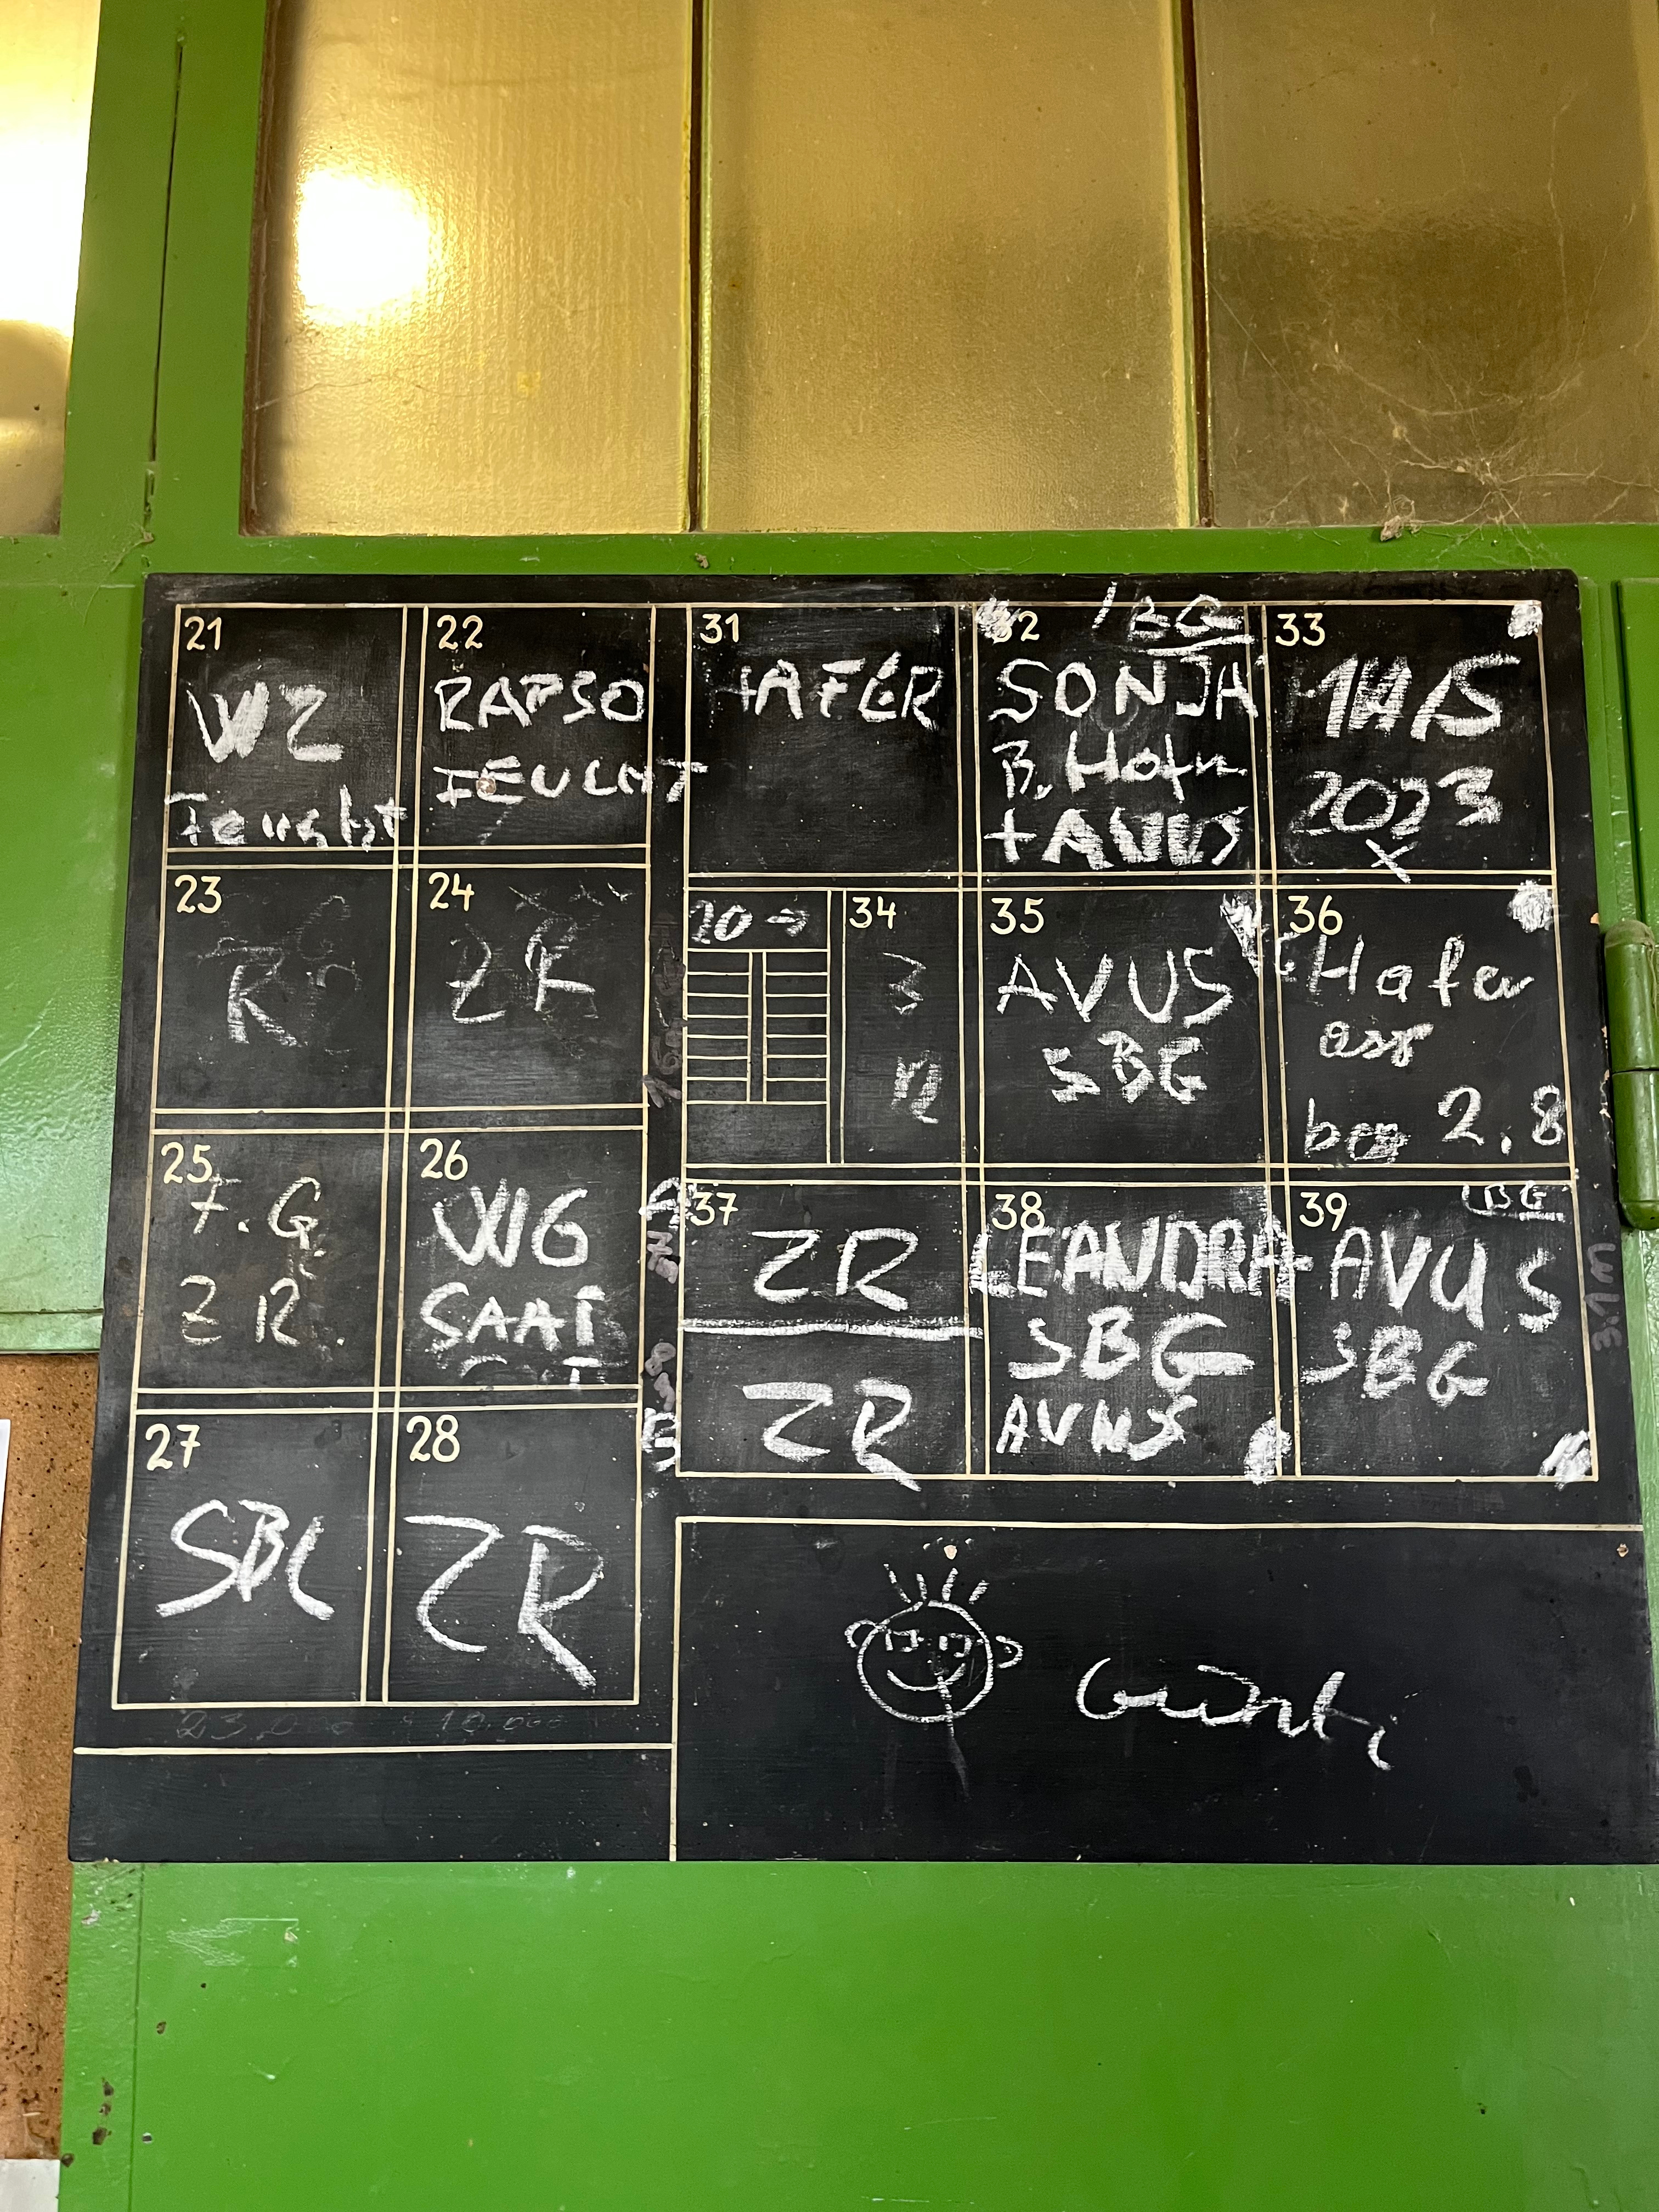 21
WZ
Feucht
22
RAPSO
FEUCHT
23
R
24
ZR
25
F.G
ZR.
26
WG
SAAT
27
SBG
28
ZR
23.000 10.000
31
HAFER
32 BG
SONJA
+AVUS
33
MAIS
2023
X
20→
34
35
AVUS
SBG
36
Hafer
2,8
37
ZR
ZR
38
LEANDRA
SBG
AVUS
39 BG
AVUS
SBG